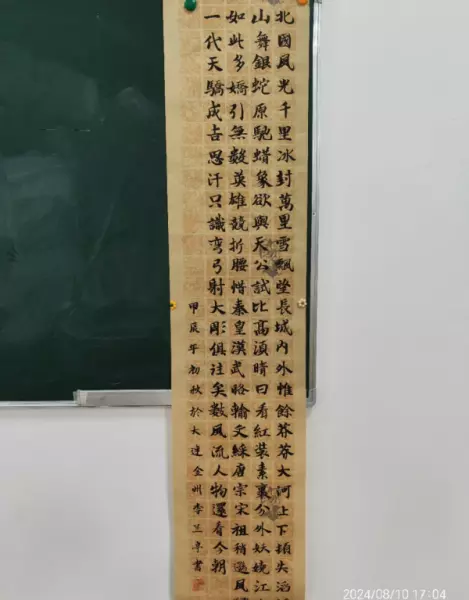 北國風光千里冰封萬里雪飄望長城內外惟餘莽莽大河上下頓失滔
山舞銀蛇原馳蠟象欲與天公試比高須晴日看紅裝素裹分外妖嬈江
如此多嬌引無數英雄競折腰惜秦皇漢武略輸文綵唐宗宋祖稍遜風
一代天驕成吉思汗只識彎弓射大彫俱往矣數風流人物還看今朝
甲辰年初秋於大連金州李兰亭書
2024/08/10 17:04